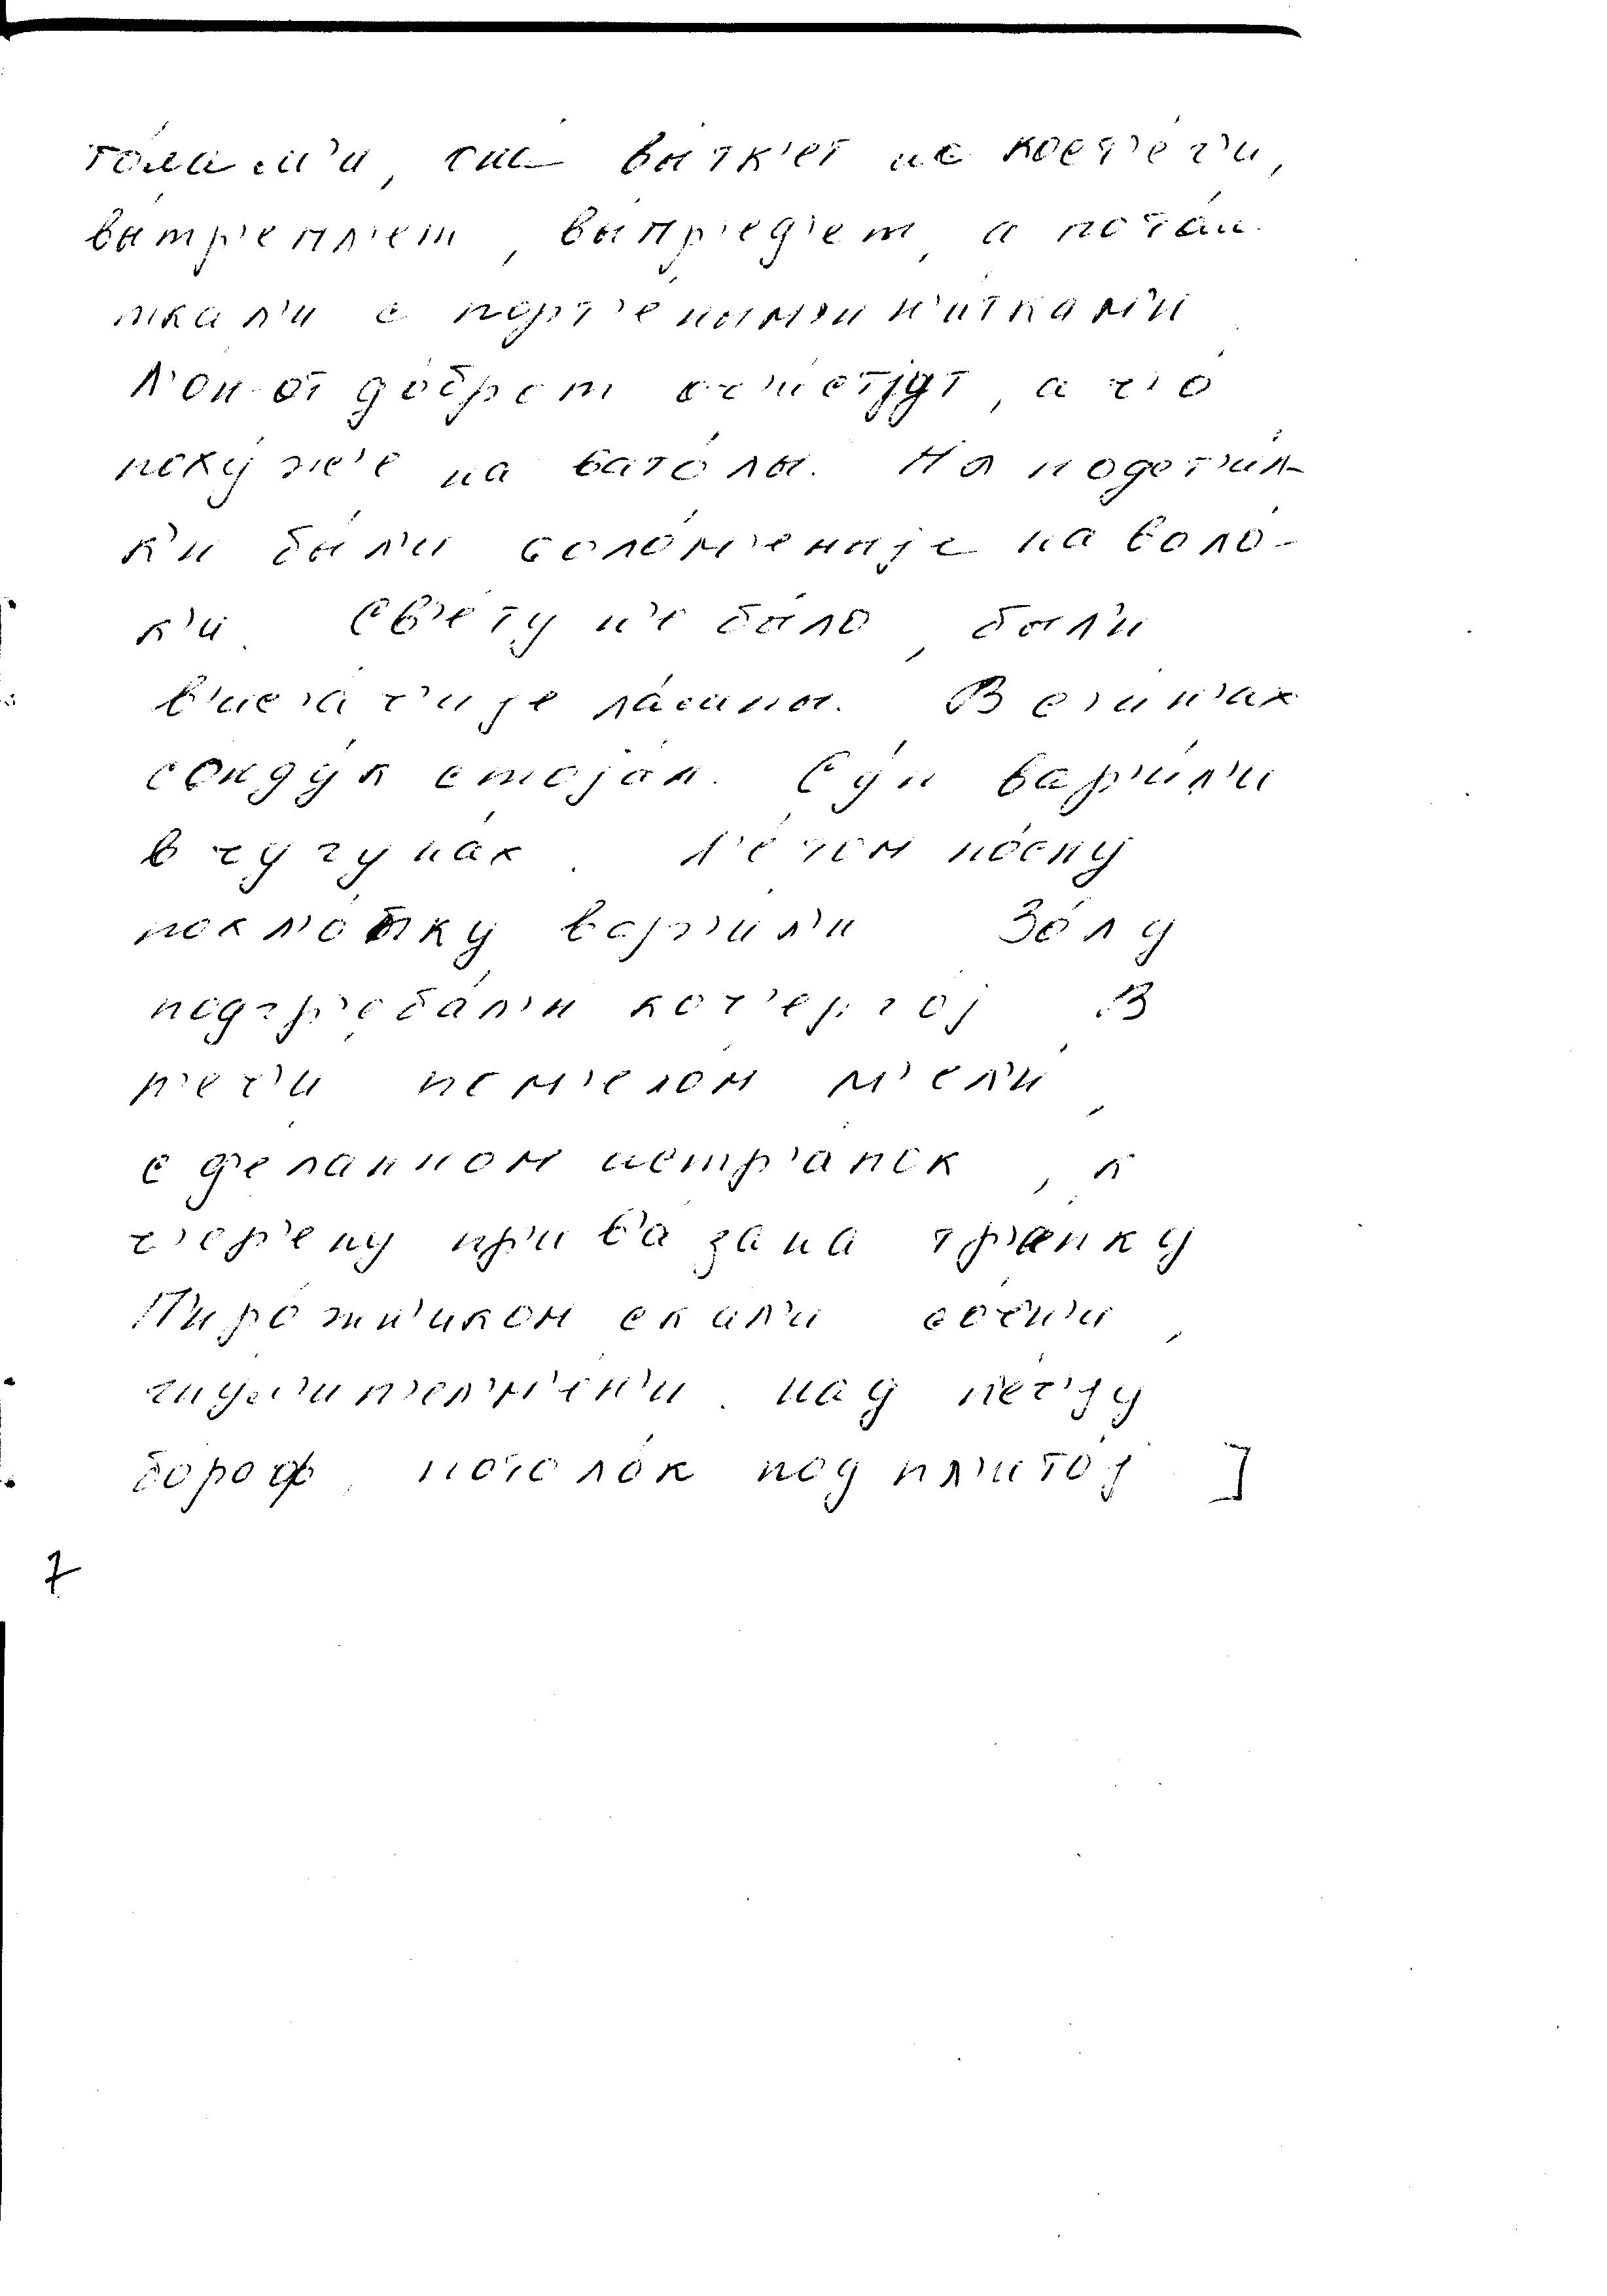 то́лам'и, вы́тк'ет ис кост'е́г'и,
вы́тр'епл'ет, вы́пр'ед'ет, а пото́м
тка́л'и с порт'е́ным'и н'и́ткам'и
Л'он-от до́брот оч'ист'ја́т, а ч'о
поху́же на вато́лы. На подст'и́л-
к'и бы́л'и соло́м'еныје наволо́-
к'и. Св'е́ту н'е бы́ло, бы́л'и
в'ис'а́ч'ије ла́мпы. В с'и́н'ах
сонду́к стоја́л. Су́п вар'и́л'и
в чугуна́х. Л'е́том по́сну
похл'о́бку вар'и́л'и Зо́лу
подгр'еба́л'и коч'ерго́ј В
п'еч'и́ пом'ело́м м'ел'и́,
сд'е́ланном истр'а́пок, к
ч'ер'ену́ пр'ив'а́зана тр'а́пку
П'иро́жн'иком ска́л'и со́чн'и,
п'ел'м'е́н'и. над п'е́ч'ју
бо́роф, потоло́к под пл'ито́ј ]
7